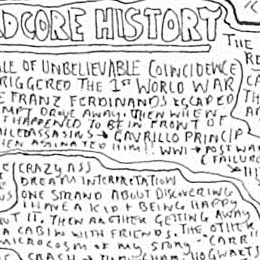 DCORE HISTORY
THE
LE OF UNBELIEVABLE COINCIDENCE
RIGGERED THE 1ST WORLD WAR
FRANZ FERDINANDS ESCAPED
DROVE AWAY. THEN WHEN
HAPPENED TO BE IN FRONT OF
ILEDASSASINS → GAVRILLO PRINCIP
HEN ASSINATED HIM!! WWI → POST WAR
( FAILURE
CRAZY ASS
DREAM INTERPRETATION
ONE STRAND ABOUT DISCOVERING
I HAVE A KID & BEING HAPPY
UT IT. THEN ANOTHER GETTING AWAY
A CABIN WITH FRIENDS. THE OTHER
MICROCOSM OF MY STORY - "CARRI
CRASH → THROUGH HOGWARTS